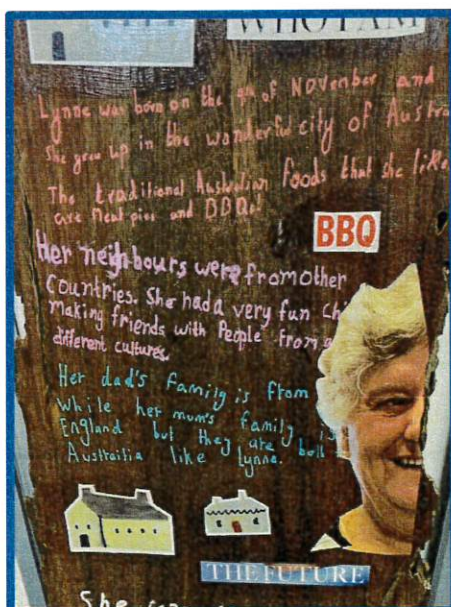 WHO I AM
Lynne was born on the 9th of November and
She grew up in the wonderful city of
The traditional Australian foods that she
are Meat pies and BBQs!
BBQ
Her neighbours were from other
Countries. She had a very fun
Making friends with People from
different cultures.
Her dad's family is from
While her mum's family is
England but they are
Austrailia like Lynne.
THE FUTURE
She